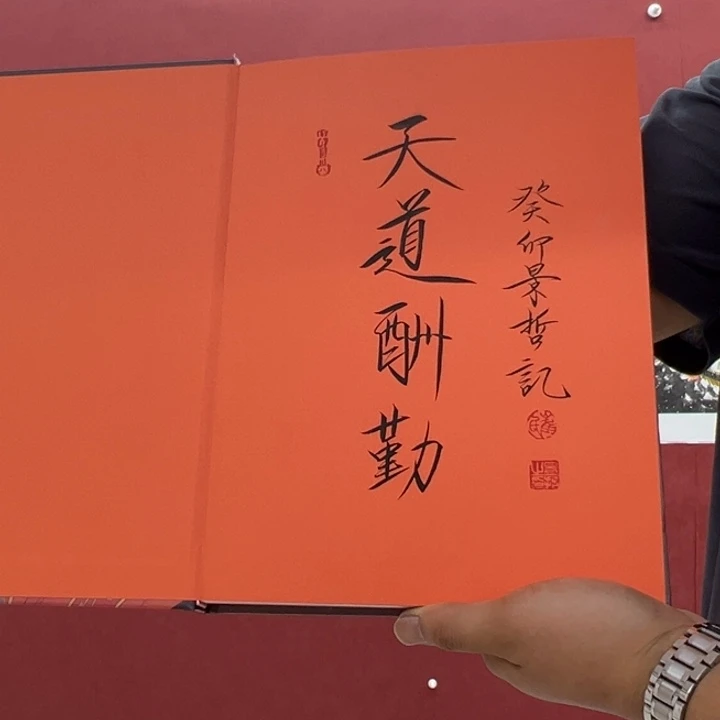 天道酬勤
癸卯景哲記